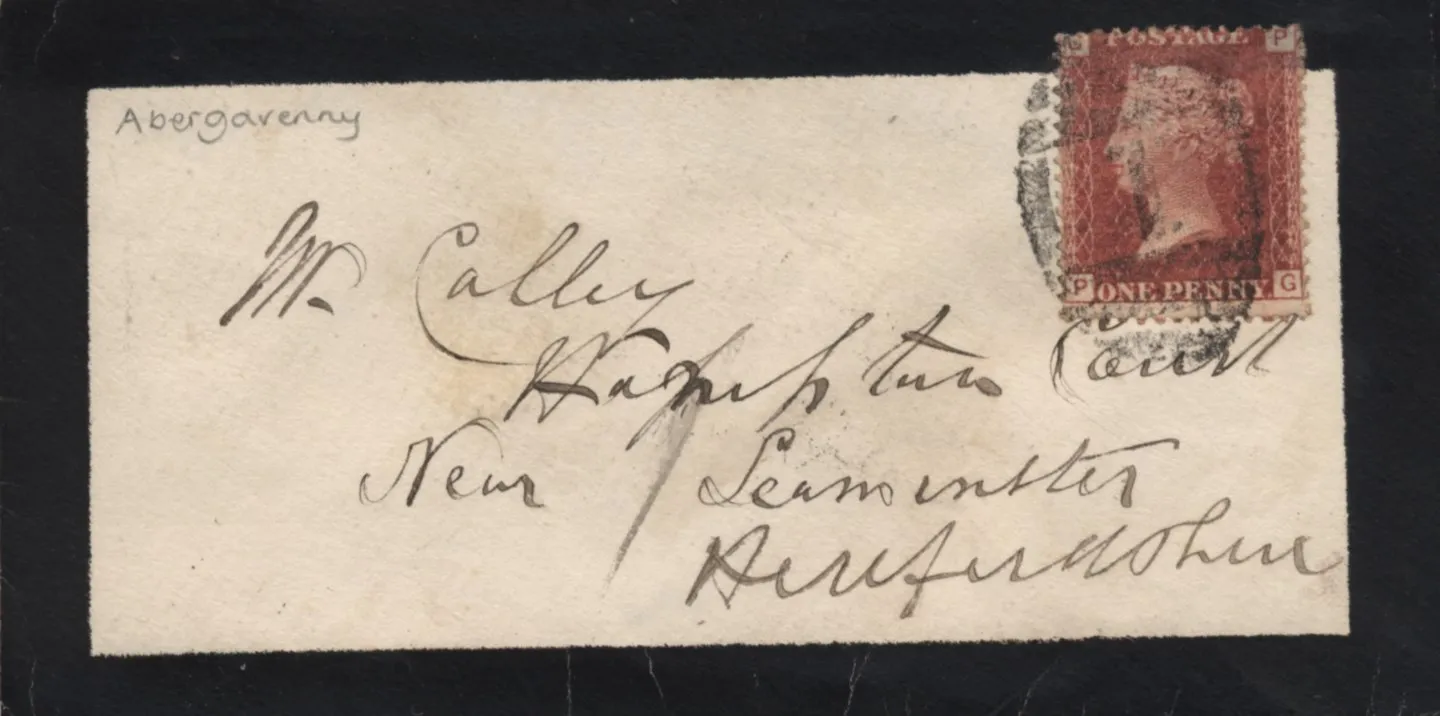 Abergavenny
G POSTAGE P
P ONE PENNY G
Mr Calley
Hampton Court
Near Leominster
Herefordshire